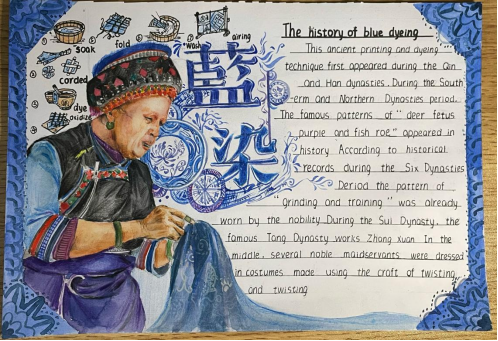 soak
fold
wash
airing
corded
dye
oxidize
藍
染
The history of blue dyeing
This ancient printing and dyeing
technique first appeared during the Qin
and Han dynasties. During the South
-ern and Northern Dynasties period.
The famous patterns of "deer fetus
purple and fish roe" appeared in
history According to historical
records during the Six Dynasties
Deriod the pattern of
"grinding and training" was already
worn by the nobility During the Sui Dynasty, the
famous Tang Dynasty works Zhang xuan In the
middle, several noble maidservants were dressed
in costumes made using the craft of twisting,
and twisting